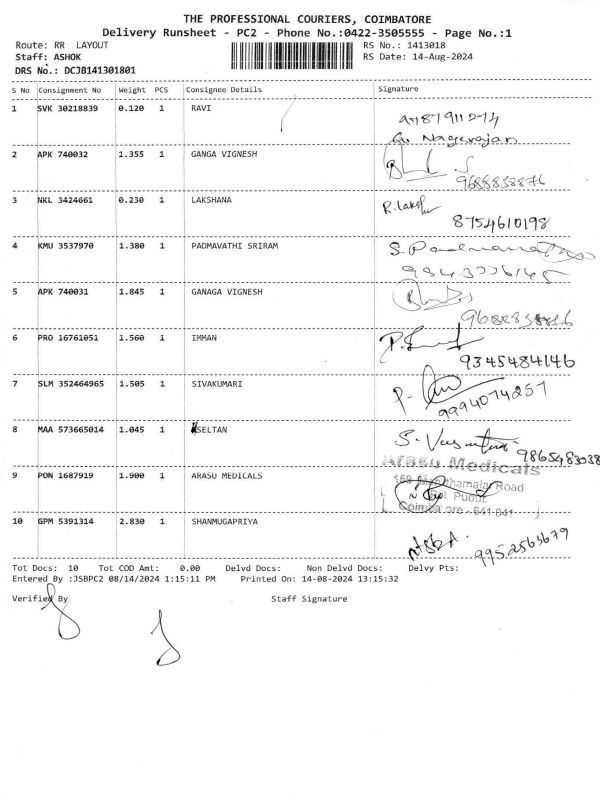 THE PROFESSIONAL COURIERS, COIMBATORE
Delivery Runsheet - PC2 - Phone No.:0422-3505555 - Page No.:1
Route: RR LAYOUT RS No.: 1413018
Staff: ASHOK RS Date: 14-Aug-2024
DRS No.: DCJB141301801
S No Consignment No Weight PCS Consignee Details Signature
1 SVK 30218839 0.120 1 RAVI
Nagarajan
2 APK 740032 1.355 1 GANGA VIGNESH
9688838876
3 NKL 3424661 0.230 1 LAKSHANA R. Laksh
8754610198
4 KMU 3537970 1.380 1 PADMAVATHI SRIRAM
5 APK 740031 1.845 1 GANAGA VIGNESH
6 PRO 16761051 1.560 1 IMMAN
9345484146
7 SLM 352464965 1.505 1 SIVAKUMARI
9994074257
8 MAA 573665014 1.045 1 SELTAN
9865483038
Arasu Medicals
9 PON 1687919 1.900 1 ARASU MEDICALS
Road
Pudur
Coimbatore - 641 041
10 GPM 5391314 2.830 1 SHANMUGAPRIYA
9952563679
Tot Docs: 10 Tot COD Amt: 0.00 Delvd Docs: Non Delvd Docs: Delvy Pts:
Entered By :JSBPC2 08/14/2024 1:15:11 PM Printed On: 14-08-2024 13:15:32
Verified By Staff Signature